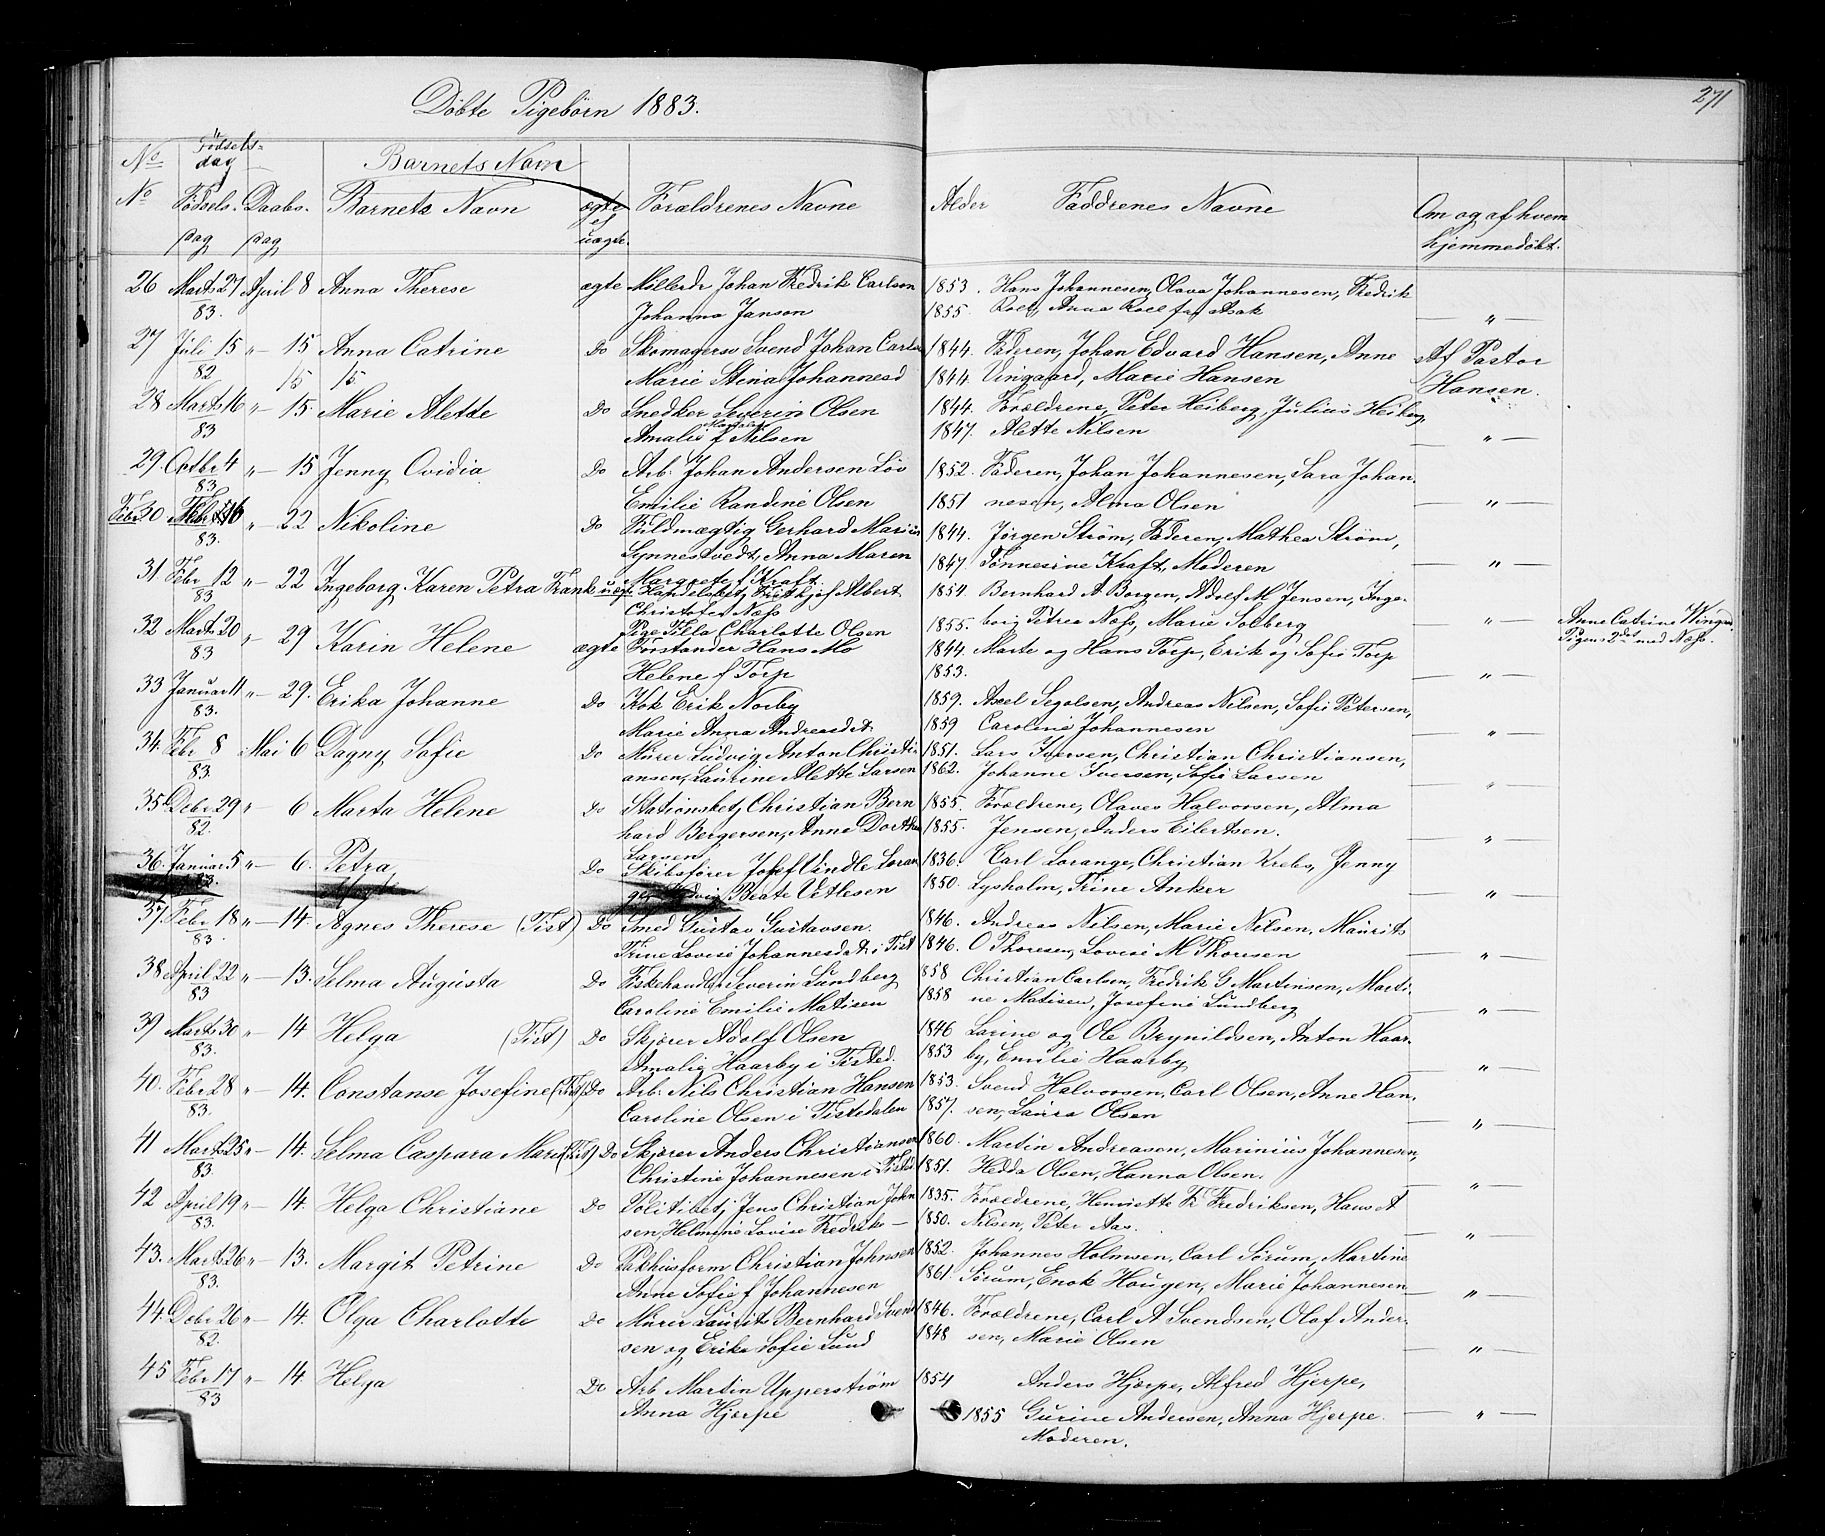 271
Døbte Pigebørn 1883.
No Fødsels- dag Barnets Navn
No Fødsels- Daabs- Barnets Navn ægte Forældrenes Navne Alder Faddrenes Navne Om og af hvem
dag dag el uægte. hjemmedøbt.
26 Marts 27 April 8 Anna Therese ægte Johan Fredrik Carlson 1853. Hans Johannesen, Olava Johannesen, Fredrik
83. Johanna Janson 1855. Roel, Anna Roel fra Asak — " —
27 Juli 15 " — 15 Anna Catrine Do Skomagersv Svend Johan Carls 1844. Faderen, Johan Edvard Hansen, Anne Af Pastor
82 Marie Stina Johannesd 1844. Vingaard, Marie Hansen Hansen.
15 15
28 Marts 16 " — 15 Marie Alette Do Snedker Severin Olsen 1844. Forældrene, Peter Heiberg, Julius Heiberg,
83 Amalie f Nilsen 1847. Alette Nilsen — " —
29. Octbr 4 " — 15 Jenny Ovidia Do Arb. Johan Andersen Löv 1852. Faderen, Johan Johannesen, Sara Johan
83 Emilie Randine Olsen 1851 nesen, Alma Olsen — " —
30 Febr 16 " — 22 Nikoline Do Fuldmægtig Gerhard Marius 1844. Jörgen Ström, Faderen, Mathea Ström,
83. Lynnestvedt, Anna Maren 1847. Tönnesine Kraft, Moderen — " —
Margrete f Kraft
31 Febr 12 " — 22 Ingeborg Karen Petra Frank uægte Handelsbetj Frithjof Albert 1854. Bernhard A Borgen, Adolf M Jensen, Inge-
83 Christofer Næss
Pige Tilla Charlotte Olsen 1855. borg Petrea Næss, Marie Solberg — " — Anne Catrine
Pigens 2det med Næss.
32 Marts 20 " — 29 Karin Helene ægte Forstander Hans Mo 1844. Marte og Hans Torp, Erik og Sofie Torp
83 Helene f Torp 1853. — " —
33 Januar 11 " — 29. Erika Johanne Do Kok Erik Norby 1859. Axel Segolsen, Andreas Nilsen, Sofie Petersen,
83. Marie Anna Andreasdat. 1859 Caroline Johannesen — " —
34. Febr 8 Mai 6 Dagny Sofie Do Murer Ludvig Anton Christi- 1851. Lars Iversen, Christian Christiansen,
83. ansen, Laurine Alette Larsen 1862. Johanne Iversen, Sofie Larsen — " —
35. Debr 29 " — 6 Marta Helene Do Stationsbetj Christian Bern 1855. Forældrene, Olaves Halvorsen, Alma
82. hard Bergersen, Anne Dorthea 1855. Jensen, Anders Eilertsen. — " —
Larsen
36. Januar 5 " — 6. Petra Do Skibsfører Josef Vindle Loran 1836. Carl Lorange, Christian Krebs, Jenny
83. ge, Hedvig Beate Vetlesen 1850. Lysholm, Trine Anker — " —
37 Febr 18 " — 14. Agnes Therese (Tist) Do Smed Gustav Gustavsen. 1846. Andreas Nilsen, Marie Nilsen, Maurits
83. Trine Lovise Johannesdat. i Tist 1846. O Thoresen, Lovise M Thoresen — " —
38 April 22 " — 13. Selma Augusta Do Fiskehandler Severin Lundberg 858 Christian Carlsen, Fredrik G Martinsen, Marti-
83 Caroline Emilie Matisen 1858 ne Matisen, Josefine Lundberg — " —
39 Marts 30 " — 14 Helga (Tist) Do Skjærer Adolf Olsen 1846 Larine og Ole Brynildsen, Anton Haar-
83. Amalie Haarby i Tisted. 1853 by, Emilie Haarby — " —
40. Febr 28 " — 14. Constanse Josefine (Tist) Do Arb: Nils Christian Hansen 1853. Svend Halvorsen, Carl Olsen, Anne Han-
83. Caroline Olsen i Tistedalen 1857. sen, Laura Olsen — " —
41 Marts 25 " — 14. Selma Caspara Marie (Tist) Do Skjærer Anders Christiansen 1860. Martin Andreasen, Marinius Johannesen,
83. Christine Johannesen i Tisted 1851. Hedda Olsen, Hanna Olsen. — " —
42 April 19 " — 14. Helga Christiane Do Politibetj Jens Christian John 1835. Forældrene, Henriette Fr Fredriksen, Hans A
83. sen, Helmine Lovise Fredriks — 1850. Nilsen, Peter Aas. — " —
43. Marts 26 " — 13. Margit Petrine Do Pakhusform Christian Johnsen 1852. Johannes Holmsen, Carl Sörum, Martine
83. Anne Sofie f Johannesen 1861. Sörum, Enok Hougen, Marie Johannesen — " —
44. Debr 26 " — 14. Olga Charlotte Do Murer Laurits Bernhard Svend 1846. Forældrene, Carl A Svendsen, Olaf Ander-
82. sen og Erika Sofie Lund 1848 sen, Marie Olsen — " —
45 Febr 17 " — 14. Helga Do Arb Martin Upperström 1854 Anders Hjærpe, Alfred Hjerpe,
83 Anna Hjærpe 1855 Gurine Andersen, Anna Hjerpe. — " —
Moderen.